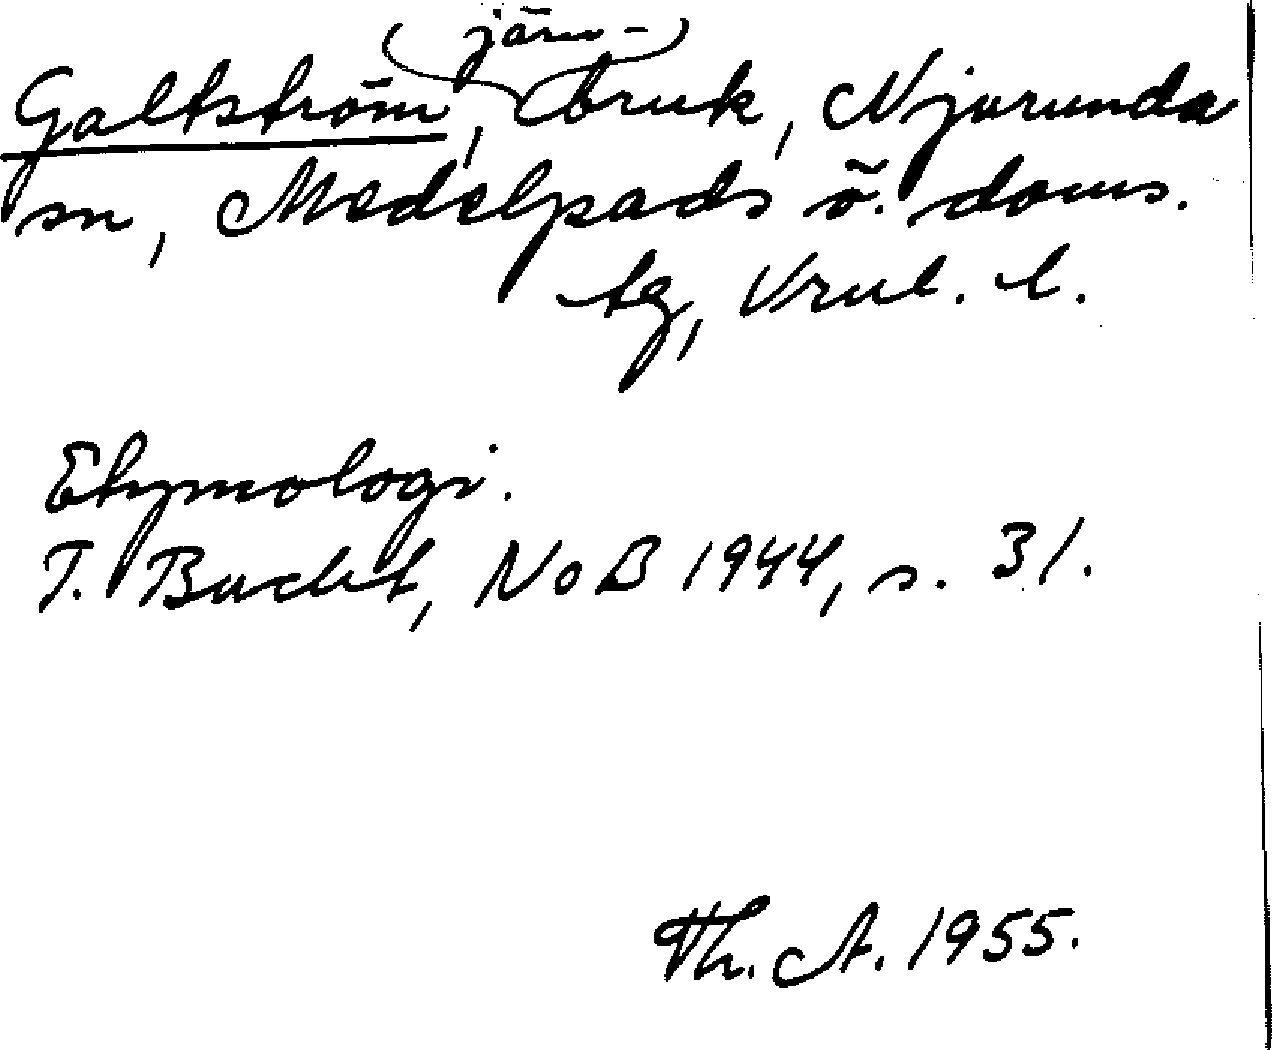 järn-
Galtström, bruk, Njurunda
sn, Medelpads ö. doms.
tg, Vrnl. l.
Etymologi.
T. Bucht, NoB 1944, s. 31.
Th. A. 1955.